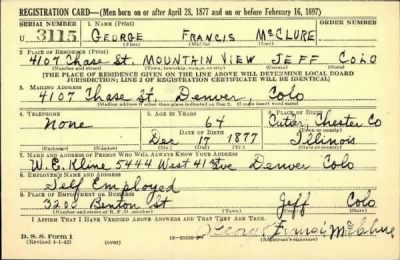 REGISTRATION CARD—(Men born on or after April 28, 1877 and on or before February 16, 1897)
SERIAL NUMBER 1. NAME (Print)
U 3115 GEORGE FRANCIS McCLURE
(First) (Middle) (Last)
2. PLACE OF RESIDENCE (Print)
4107 Chase St. MOUNTAIN VIEW JEFF COLO
(Number and street) (Town, township, village, or city) (County) (State)
[THE PLACE OF RESIDENCE GIVEN ON THE LINE ABOVE WILL DETERMINE LOCAL BOARD
JURISDICTION; LINE 2 OF REGISTRATION CERTIFICATE WILL BE IDENTICAL]
3. MAILING ADDRESS
4107 Chase St, Denver, Colo
4. TELEPHONE 5. AGE IN YEARS 6. PLACE OF BIRTH
None 64 Chester Co
DATE OF BIRTH
Dec 17 1877 Illinois
7. NAME AND ADDRESS OF PERSON WHO WILL ALWAYS KNOW YOUR ADDRESS
W. E. Kline 5444 West 41 Ave Denver Colo
8. EMPLOYER'S NAME AND ADDRESS
Self Employed
9. PLACE OF EMPLOYMENT OR BUSINESS
3200 Benton St Jeff Colo
(Number and street or R. F. D. number) (Town) (County) (State)
I AFFIRM THAT I HAVE VERIFIED ABOVE ANSWERS AND THAT THEY ARE TRUE.
D. S. S. Form 1 George Francis McClure
(Revised 4-1-42) (over) (Registrant's signature)